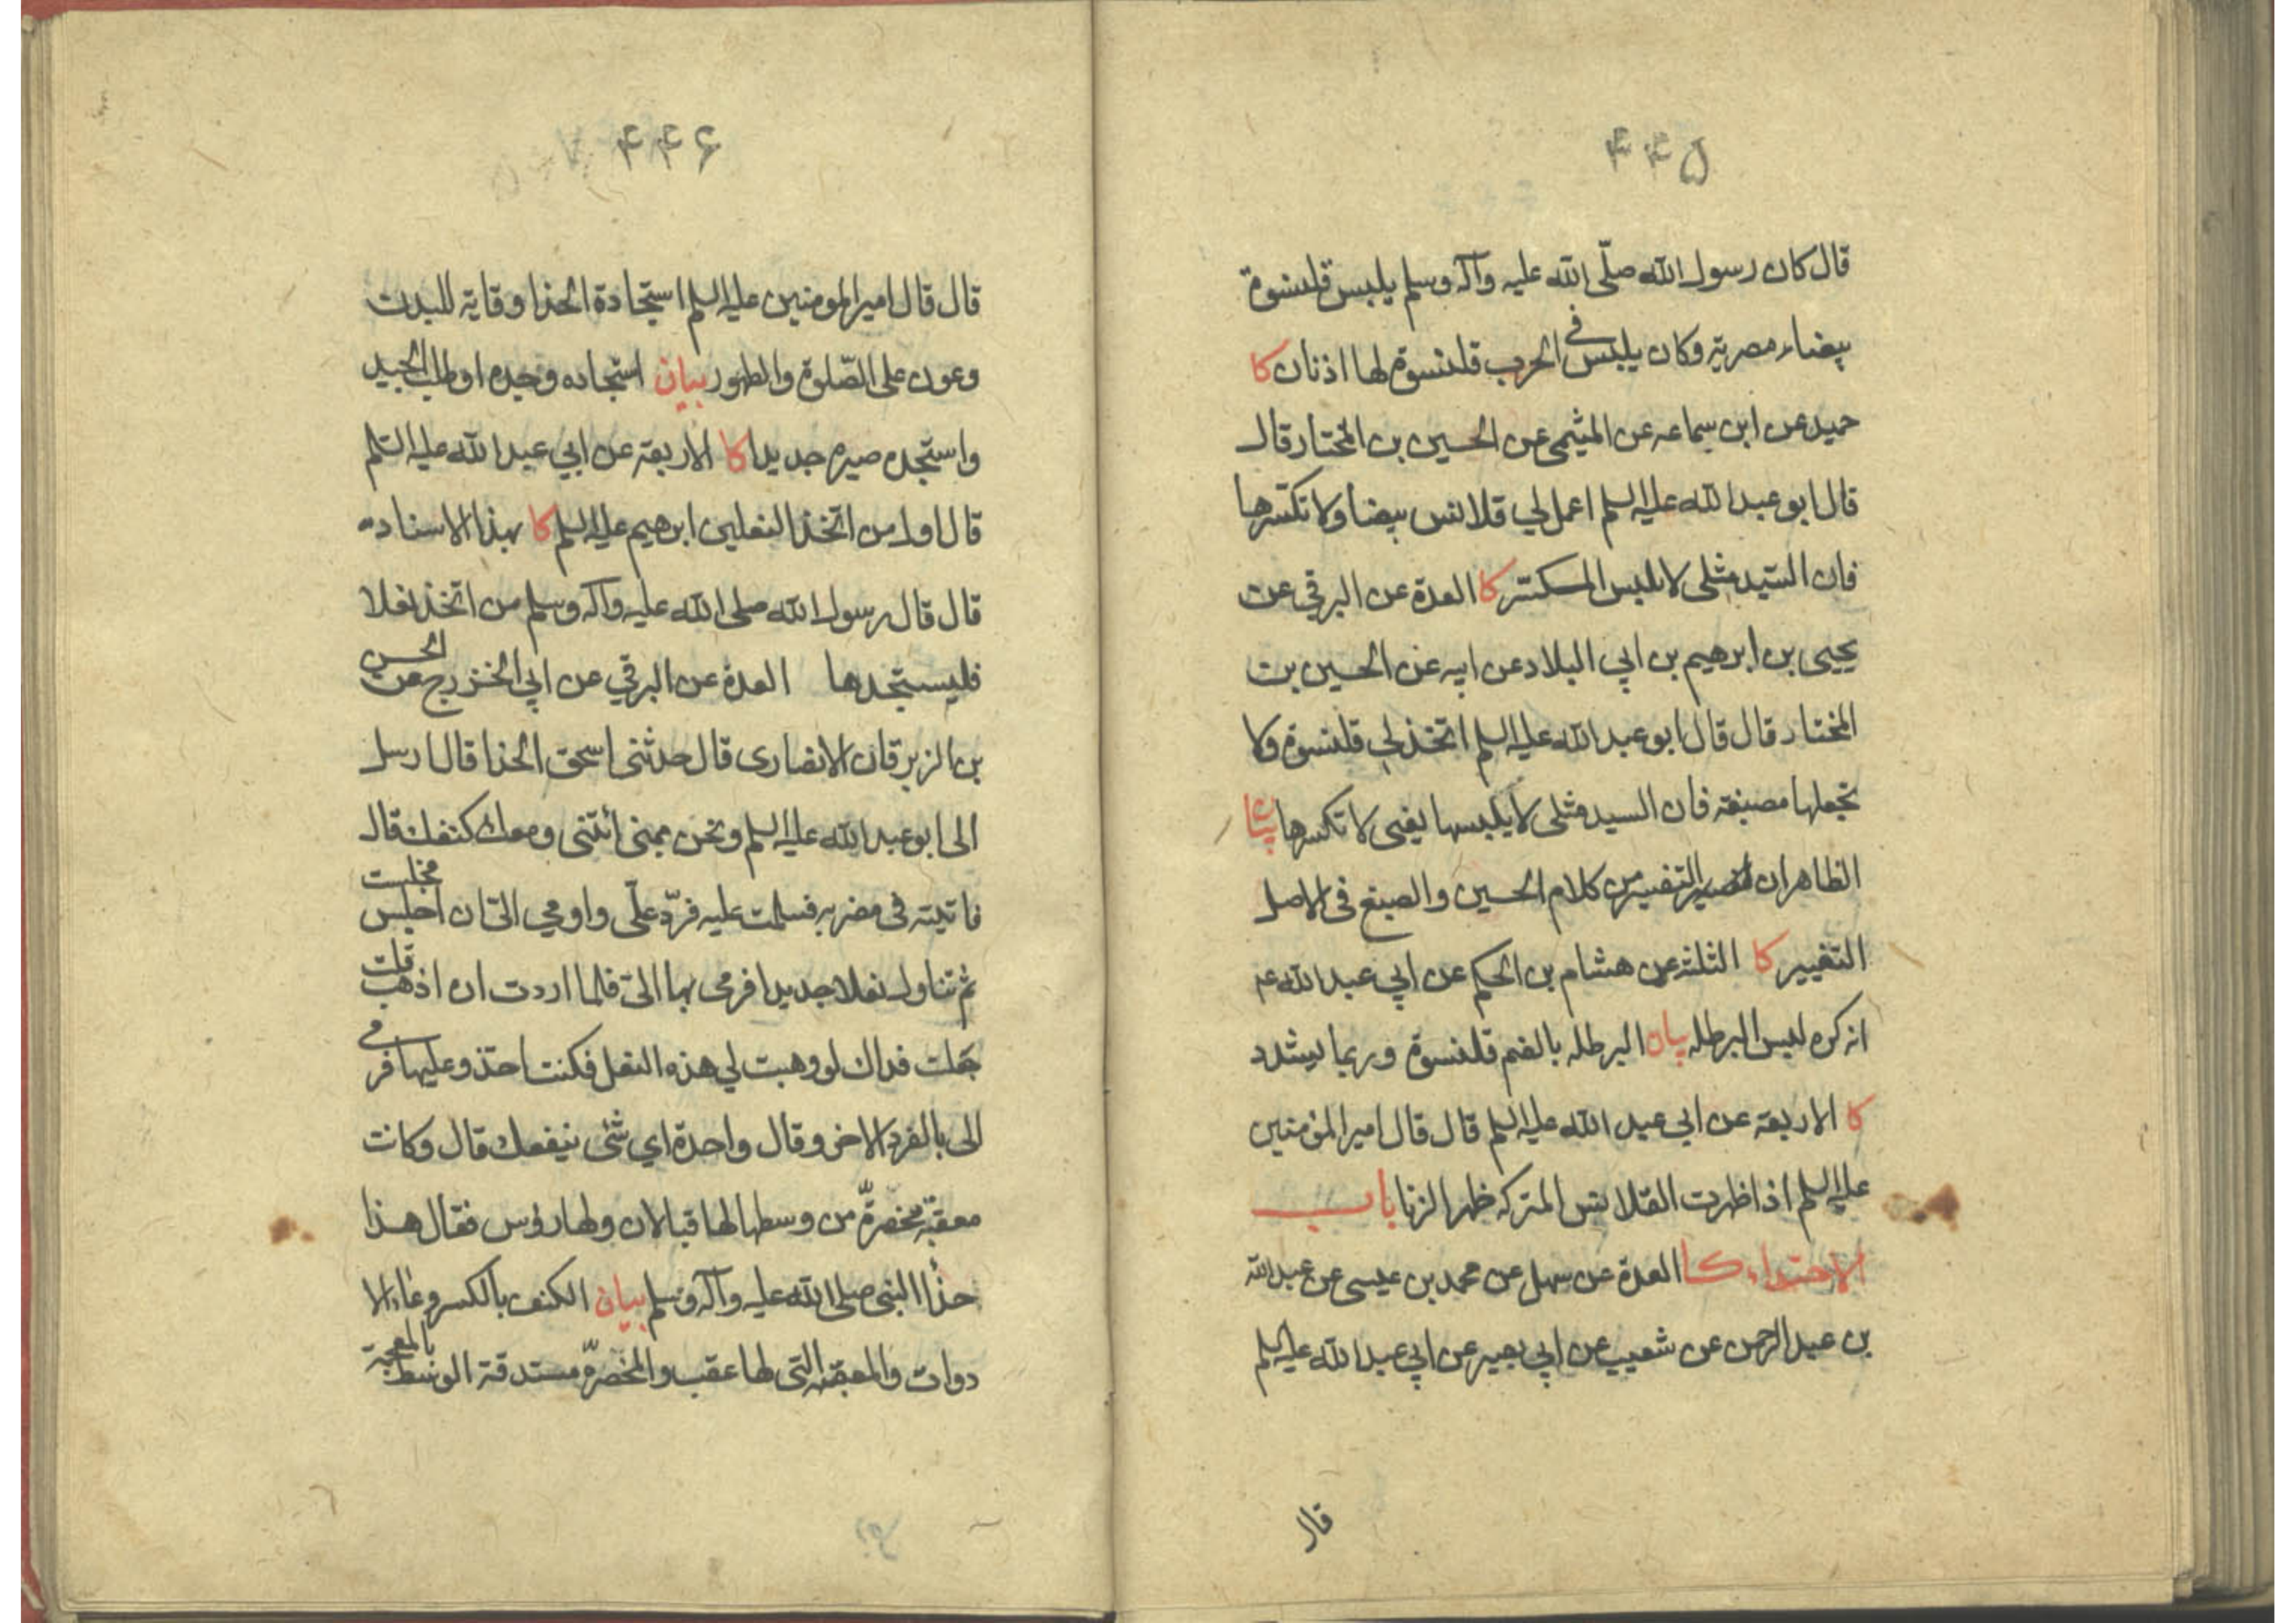 ۴۴۵
قال كان رسول الله صلّى الله عليه وآله وسلم يلبس قلنسوة
بيضاء مصرية وكان يلبس في الحرب قلنسوة لها اذنان كا
حميد عن ابن سماعه عن الميثمي عن الحسين بن المختار قال
قال ابو عبد الله عليه السلم اعمل لي قلانس بيضاء ولا تكسرها
فان السيد مثلى لا يلبس المكسر كا العدة عن البرقي عن
يحيى بن ابرهيم بن ابي البلاد عن ابيه عن الحسين بن
المختار قال قال ابو عبد الله عليه السلم اتخذ لي قلنسوة ولا
تجعلها مصبغة فان السيد مثلى لا يلبسها يعنى لا تكسرها بيان
الظاهر ان التفسير من كلام الحسين والصبغ فى الاصل
التغيير كا الثلثة عن هشام بن الحكم عن ابي عبد الله ع
انه كره لبس البرطله بيان البرطله بالضم قلنسوة وربما يشدد
كا الاربعة عن ابي عبد الله عليه السلم قال قال امير المؤمنين
عليه السلم اذا ظهرت القلانس المتركه ظهر الزنا باب
الاحتذاء كا العدة عن سهل عن محمد بن عيسى عن عبد الله
بن عبد الرحمن عن شعيب عن ابي بصير عن ابي عبد الله عليه السلم
قال
۴۴۶
قال قال امير المومنين عليه السلم استجادة الحذا وقاية للبدن
وعون على الصّلوة والطهور بيان استجاده وجده او طلب الجيد
واستجده صيره جديدا كا الاربعة عن ابي عبد الله عليه السلم
قال اول من اتخذ النعلين ابرهيم عليه السلم كا بهذا الاسناد
قال قال رسول الله صلى الله عليه وآله وسلم من اتخذ نعلا
فليستجدها العدة عن البرقي عن ابي الخزرج عن الحسن
بن الزبرقان الانصارى قال حدثنى اسحق الحذا قال ارسل
الى ابو عبد الله عليه السلم ونحن بمنى ائتنى ومعك كنفك قال
فاتيته فى مضربه فسلمت عليه فردّ علّى واومي الىّ ان اجلس فجلست
ثم تناول نعلا جديدا فرمى بها الىّ فلما اردت ان اذهب قلت
جعلت فداك لو وهبت لي هذه النعل فكنت احتذو عليها فرمى
الى بالفرد الاخر وقال واحدة اي شئ ينفعك قال وكانت
معقبة مخصرّة من وسطها لها قبالان ولها رؤس فقال هذا
حذا النبي صلى الله عليه وآله وسلم بيان الكنف بالكسر وعاء الا
دوات والمعقبه التى لها عقب والمخصرّه مستدقة الوسط بالمعجمة